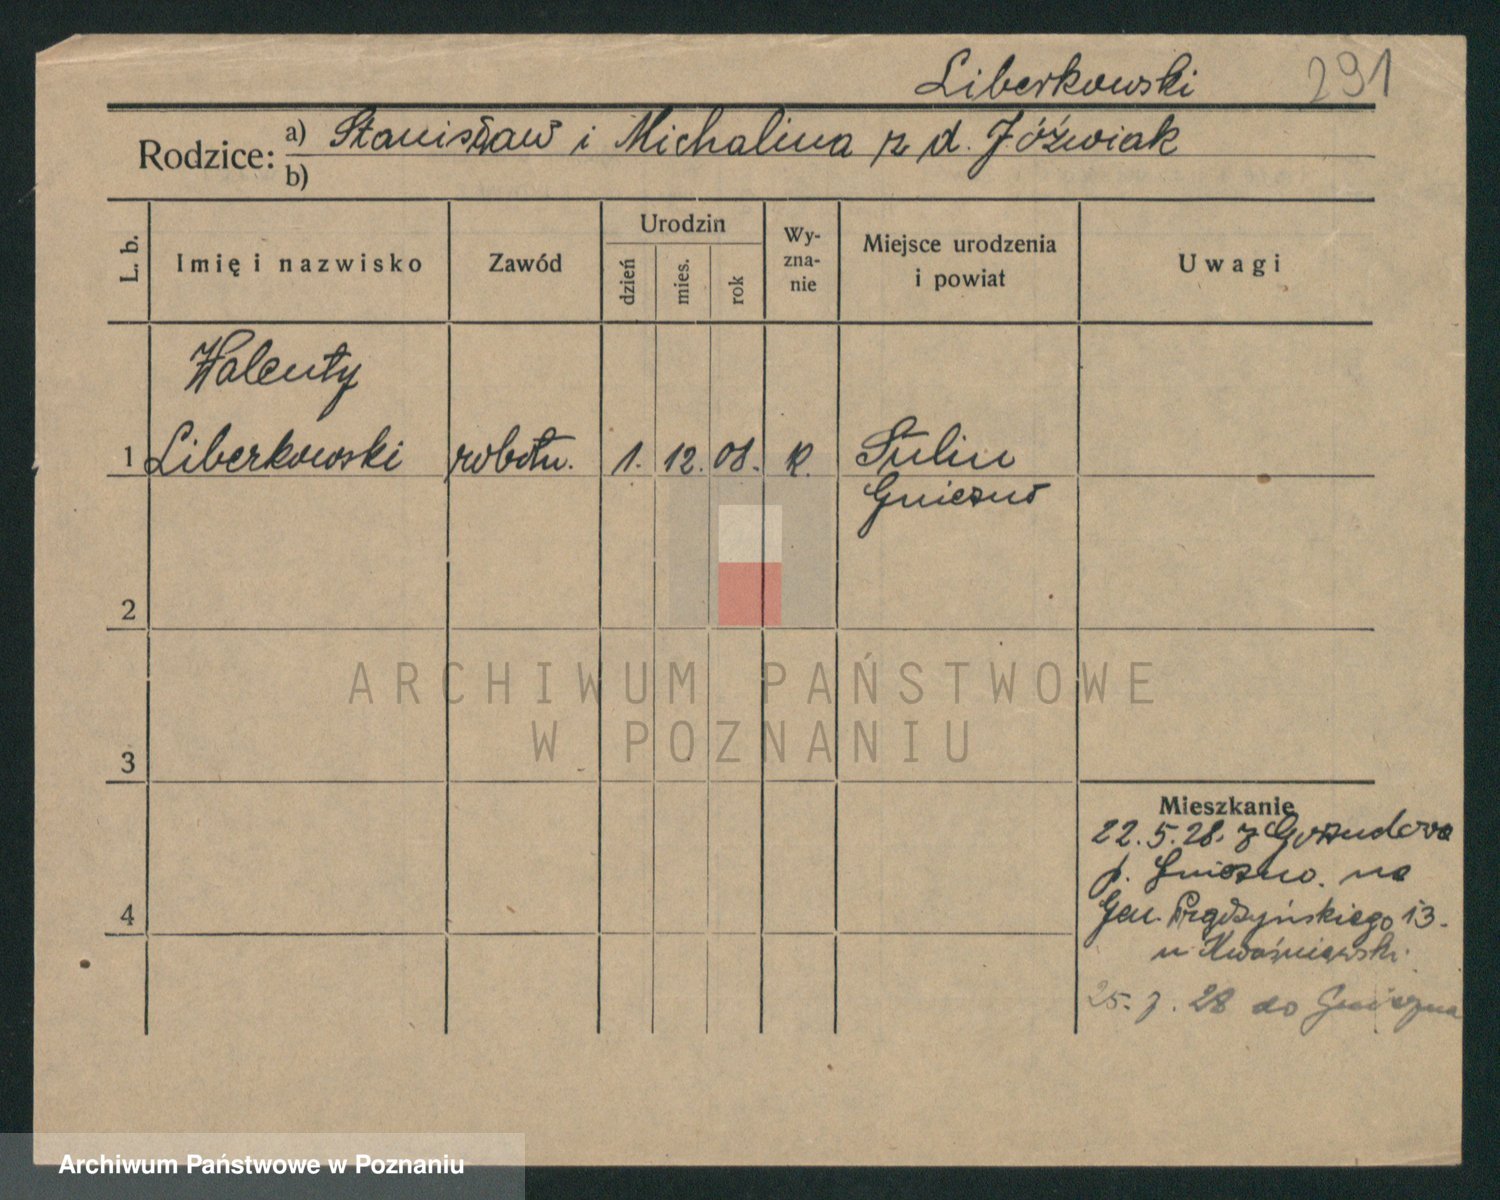 Liberkowski 291
Rodzice: a) Stanisław i Michalina z d. Jóźwiak
b)
L. b.
Imię i nazwisko
Zawód
Urodzin
dzień
mies.
rok
Wy-
zna-
nie
Miejsce urodzenia
i powiat
Uwagi
Walenty
1 Liberkowski robotn. 1. 12. 08. R. Sulin
Gniezno
2
3
4
Mieszkanie
22.5.28. z
p. Gniezno. na
Gen. Prądzyńskiego 13.
u Kwaśniewski.
25.7.28 do Gniezna
ARCHIWUM PAŃSTWOWE
W POZNANIU
Archiwum Państwowe w Poznaniu